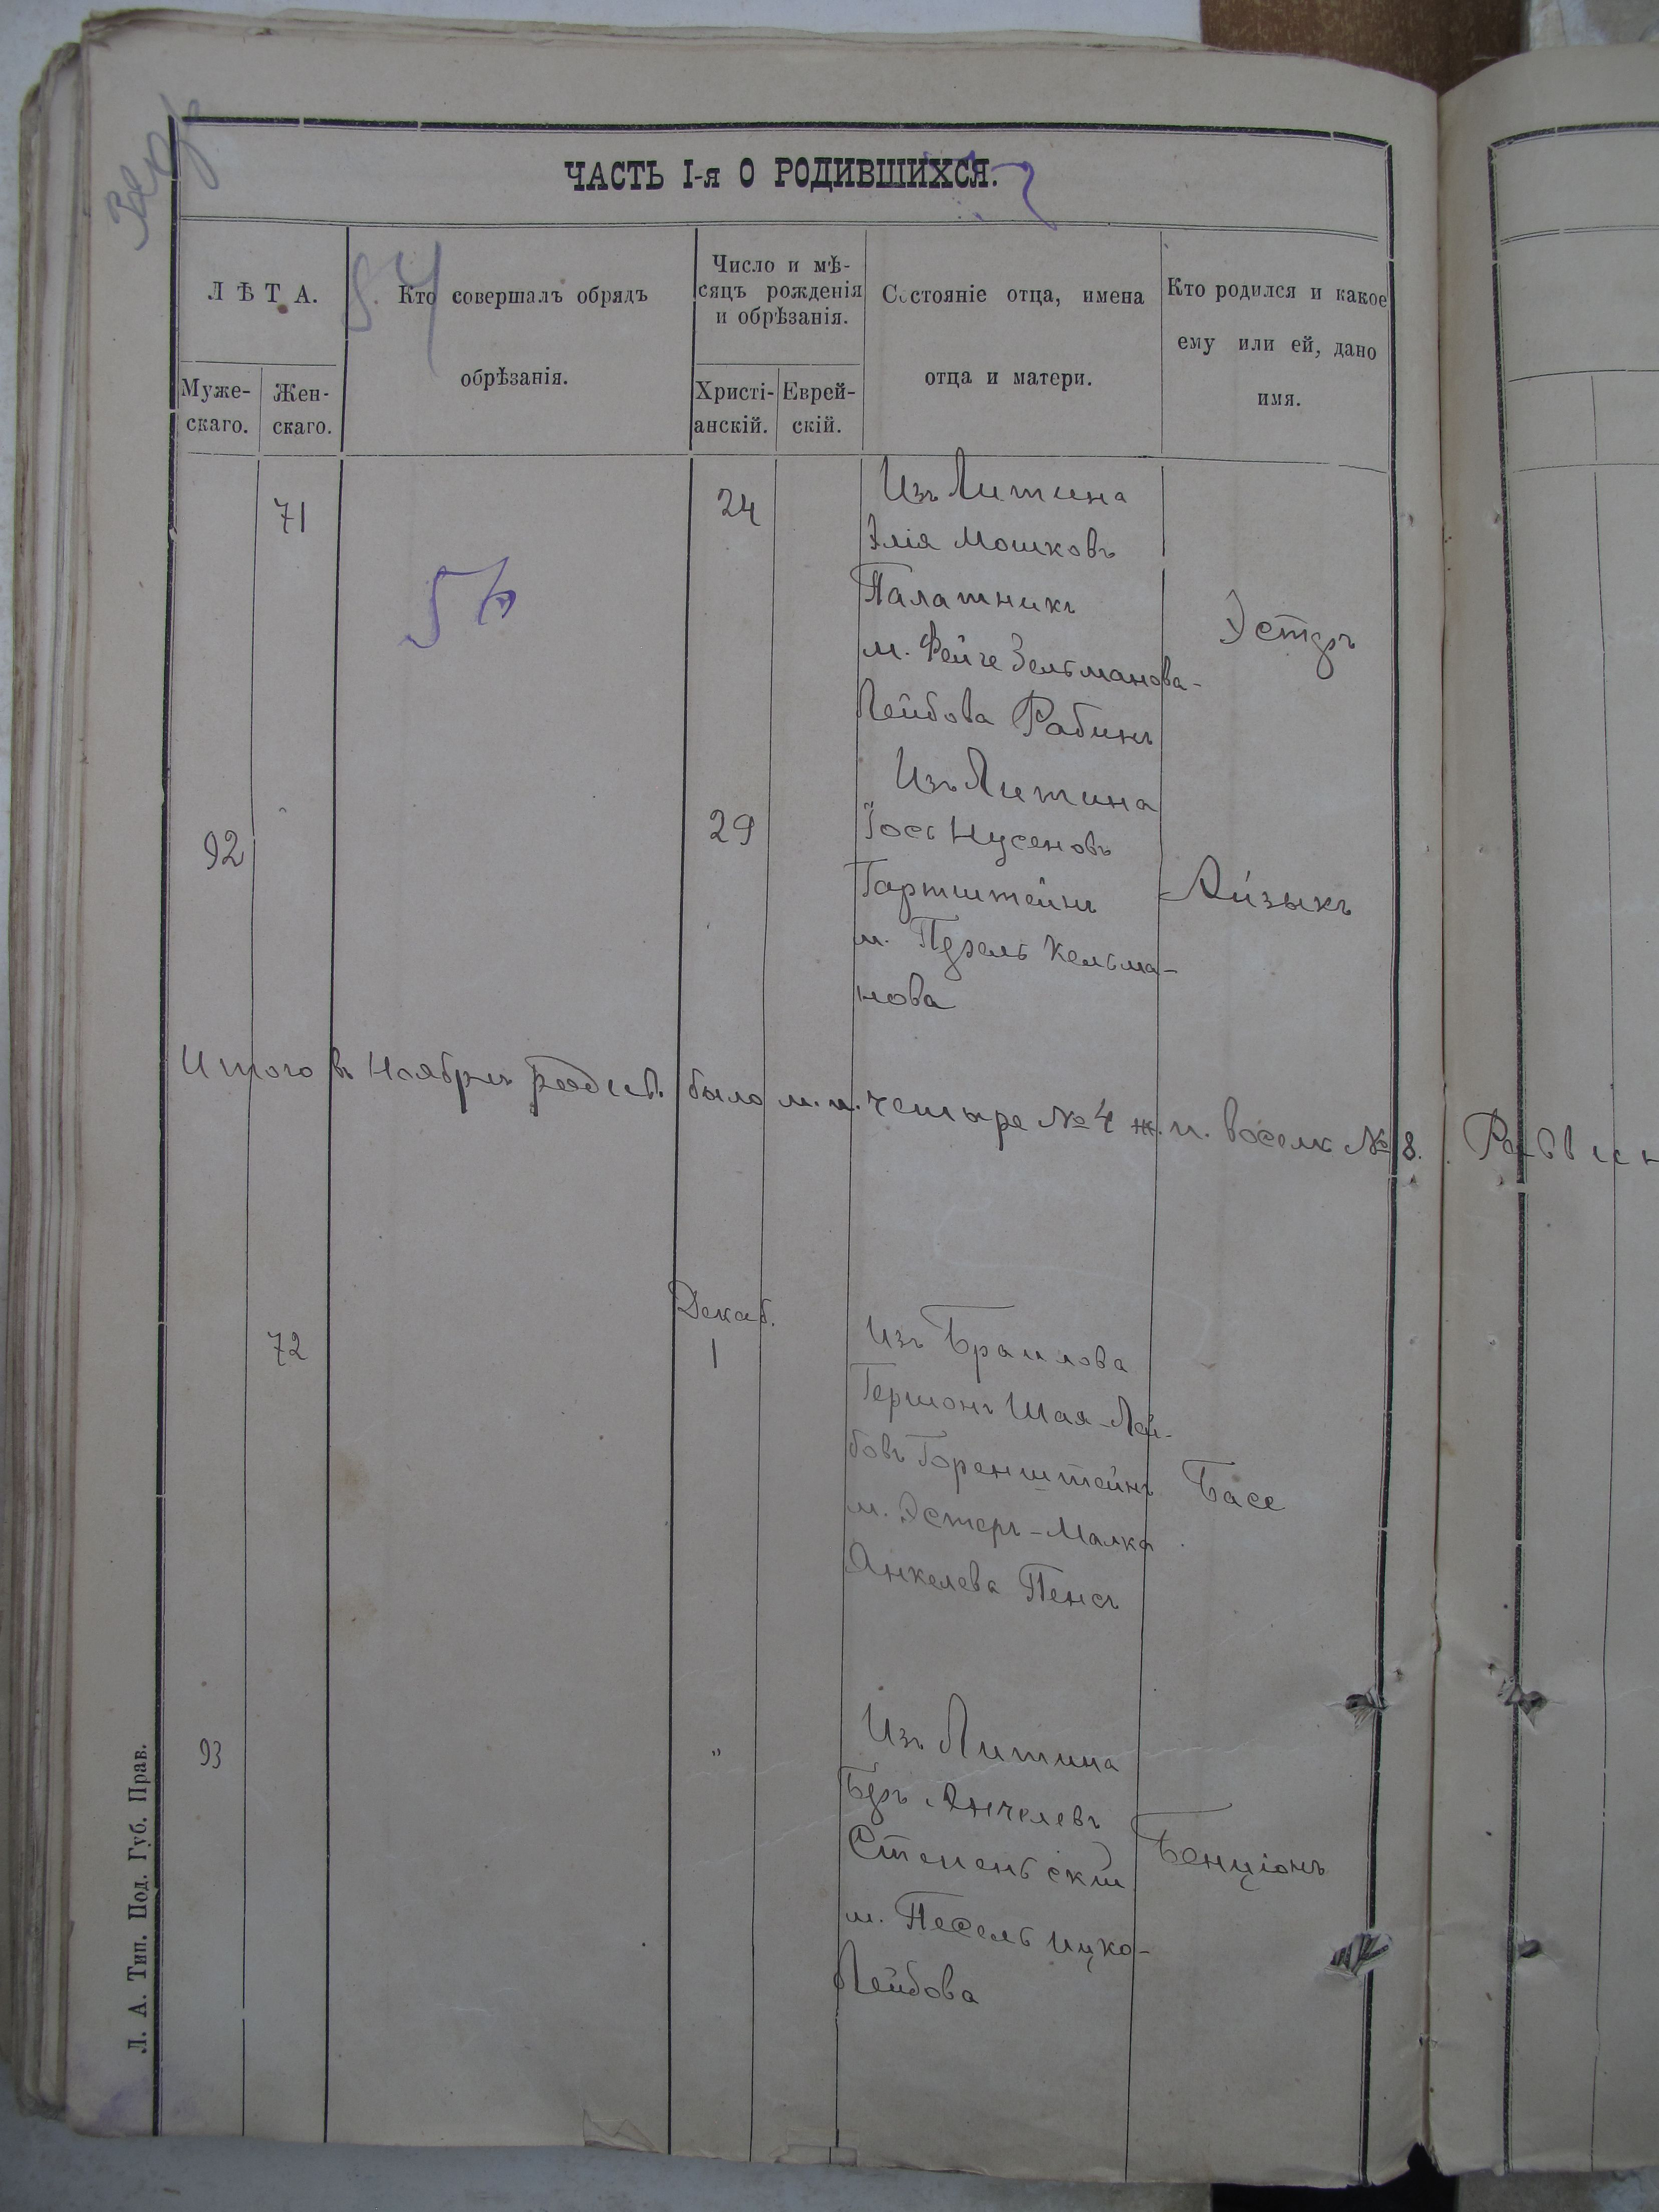 ЧАСТЬ I-я О РОДИВШИХСЯ.
ЛѢТА.
Муже-
скаго.
Жен-
скаго.
Кто совершалъ обрядъ
обрѣзанія.
Число и мѣ-
сяцъ рожденія
и обрѣзанія.
Христі-
анскій.
Еврей-
скій.
Состояніе отца, имена
отца и матери.
Кто родился и какое
ему или ей, дано
имя.
84
71
24
Изъ Литина
Элія Мошковъ
Палатникъ
м. Фейге Зельманова-
Лейбова Рабинъ
Эстеръ
92
29
Изъ Литина
Іось Нусеновъ
Гартштейнъ
м. Перель Кельма-
нова
Айзыкъ
Итого въ Ноябрѣ родив. было м. п. четыре № 4 ж. п. восемь № 8.
Декаб.
72
1
Изъ Браилова
Гершонъ Шая-Лей-
бовъ Горенштейнъ
м. Эстеръ-Малка
Янкелева Пенсъ
Басе
93
"
Изъ Литина
Беръ Анчелевъ
Степеньскій
м. Песель Ицко-
Лейбова
Бенціонъ
Л. А. Тип. Под. Губ. Прав.